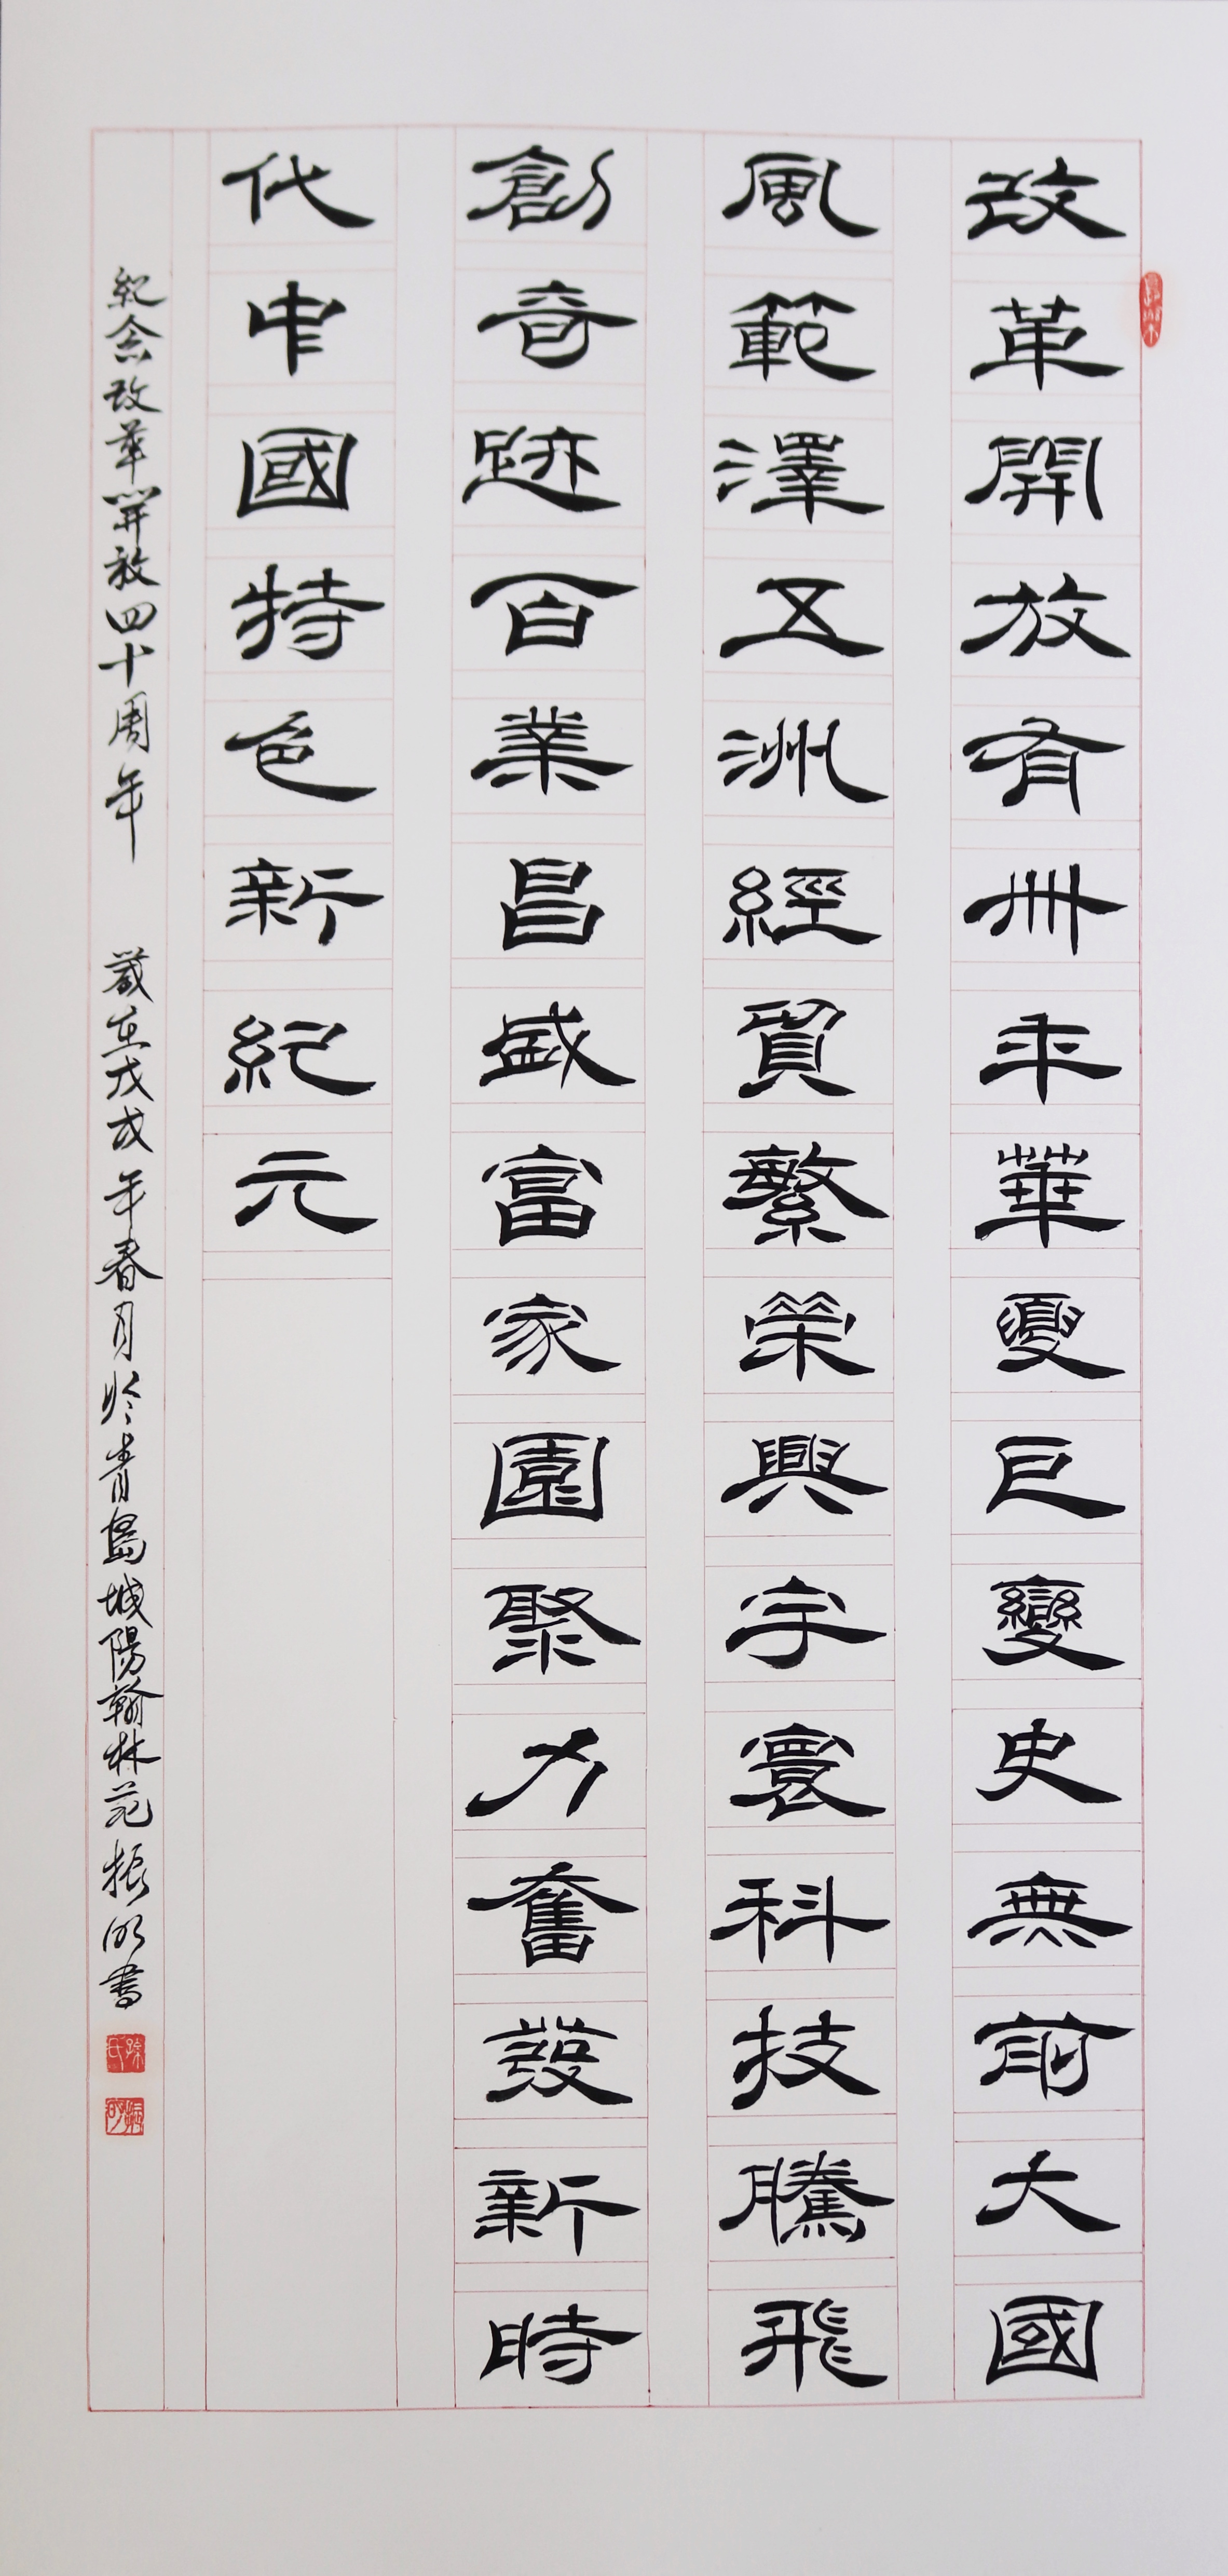 改革開放有卌年華夏巨變史無前大國
風範澤五洲經貿繁榮興宇寰科技騰飛
創奇跡百業昌盛富家園聚力奮發新時
代中國特色新紀元
紀念改革開放四十周年 歲在戊戌年春月於青島城陽翰林苑振明書
孫氏
振明